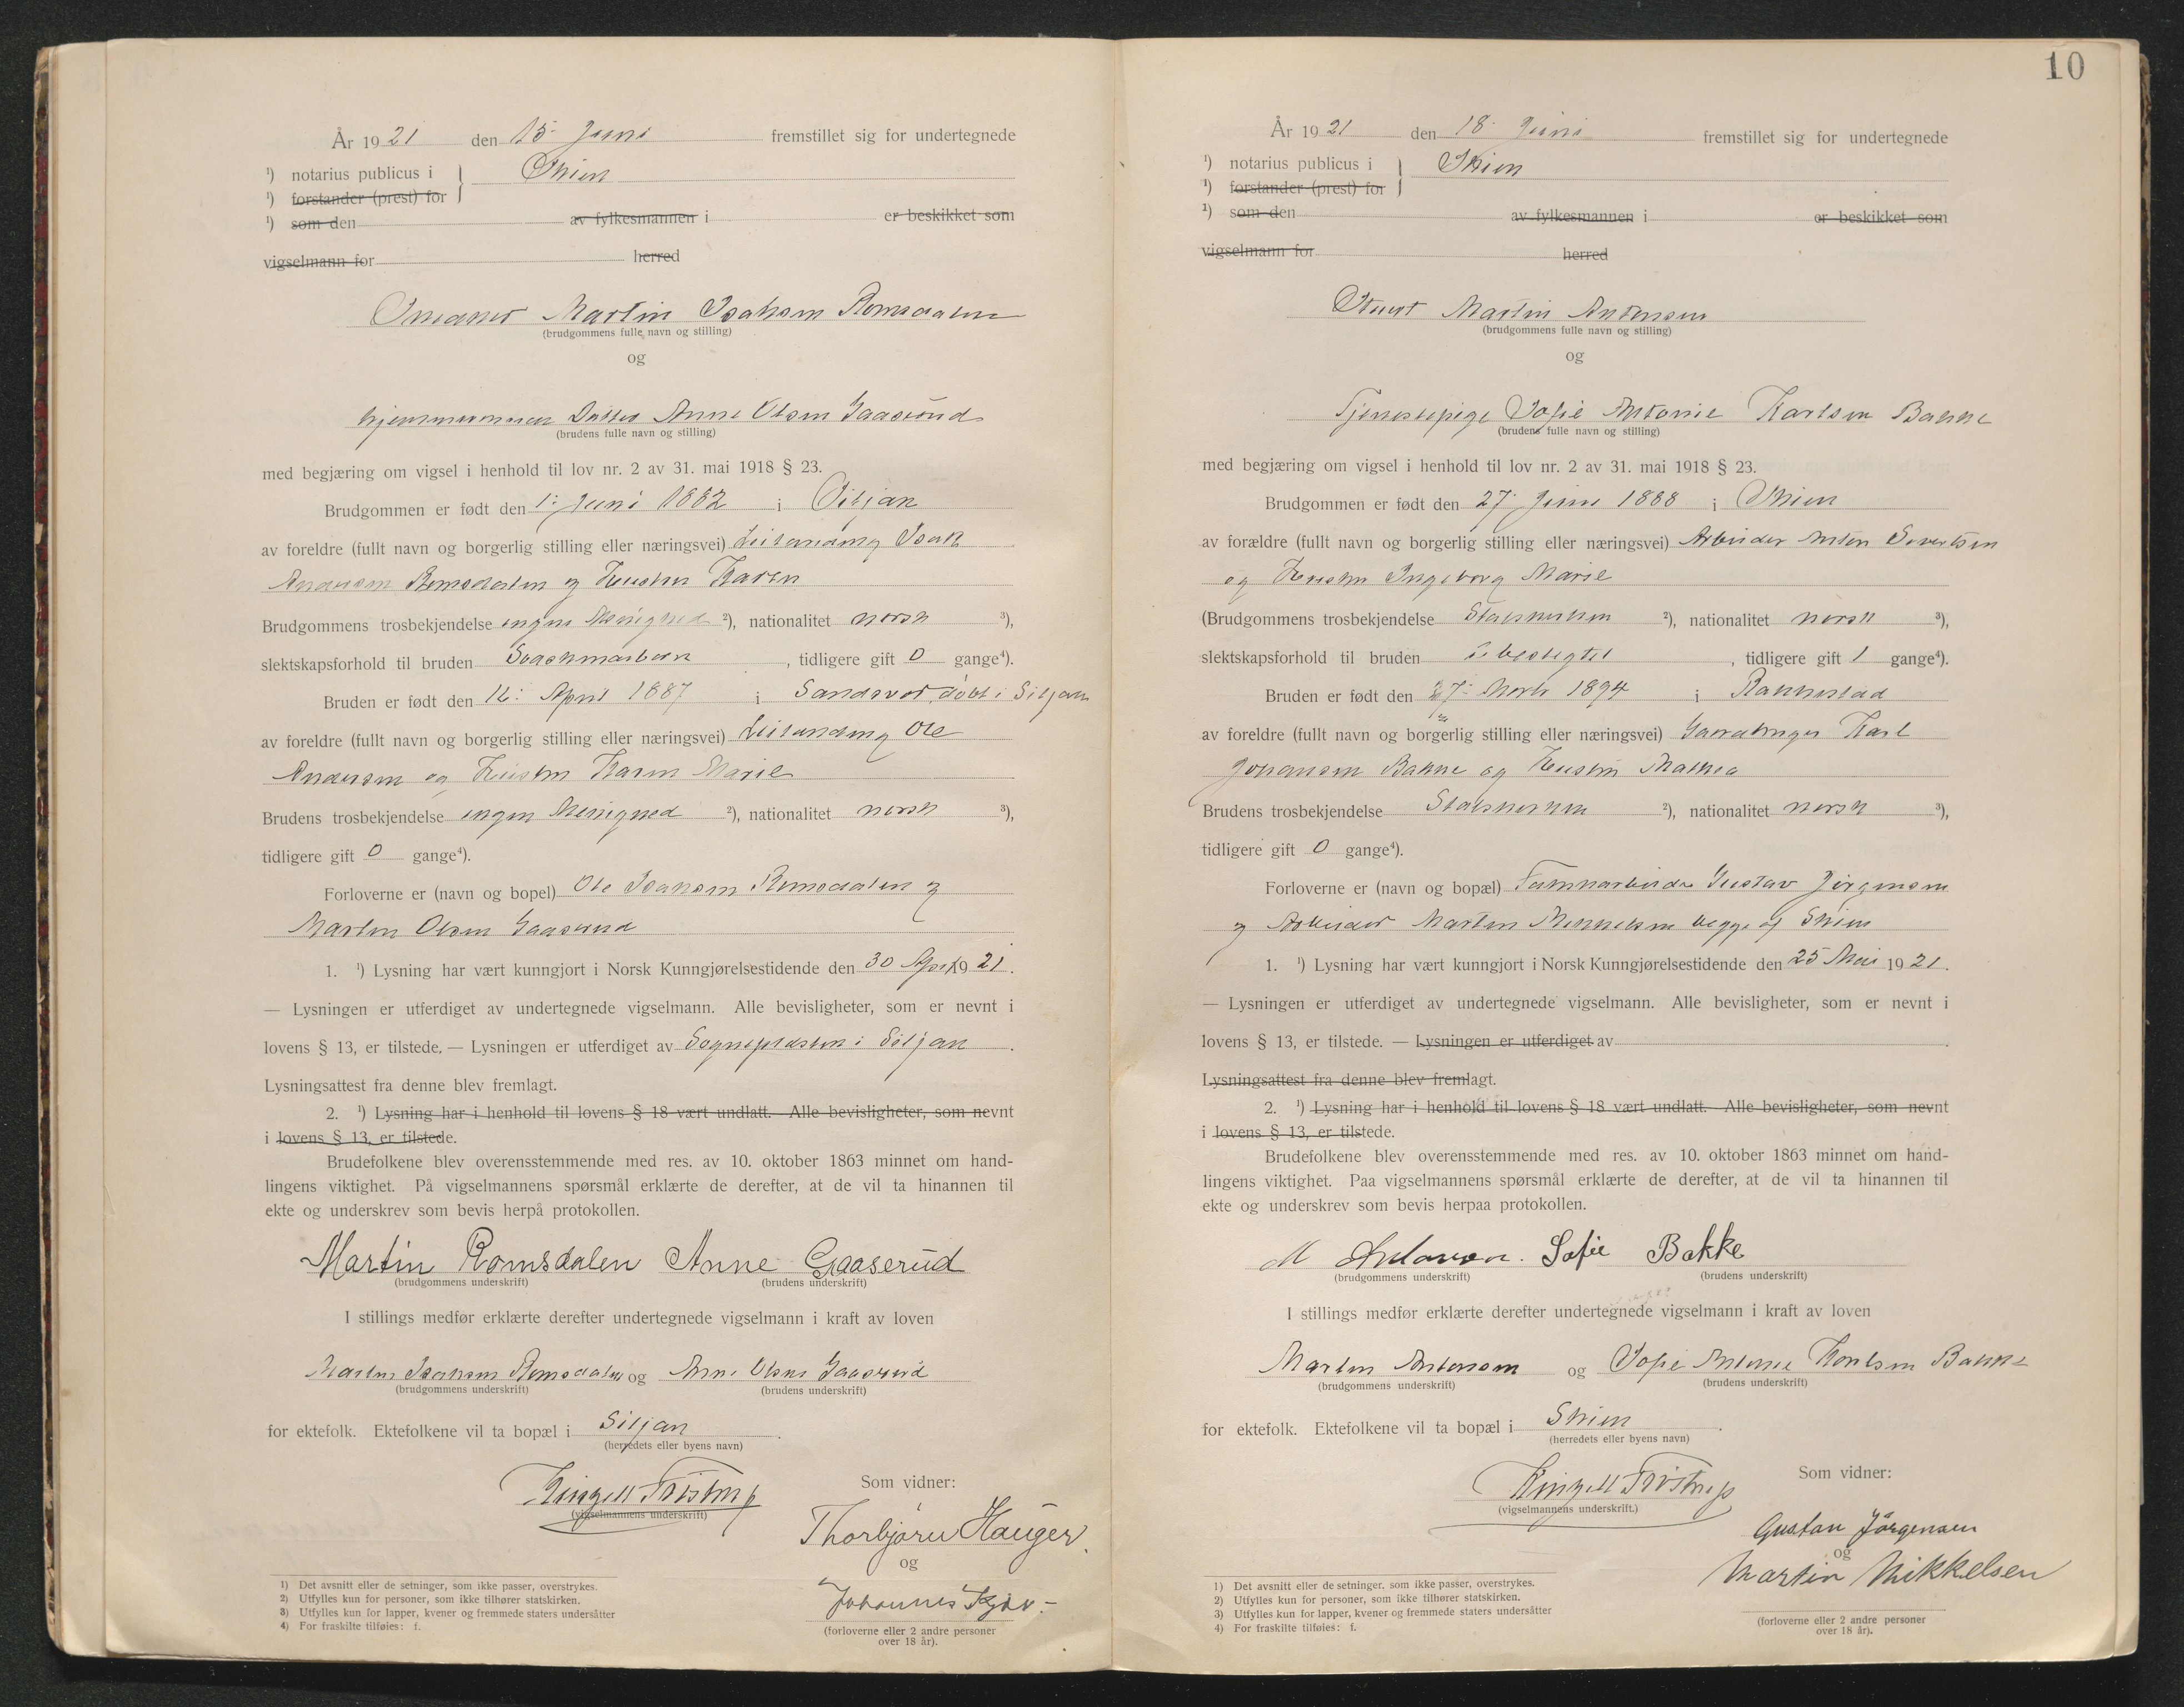 År 1921 den 15. Juni fremstillet sig for undertegnede
¹) notarius publicus i } Skien
¹) forstander (prest) for
¹) som den av fylkesmannen i er beskikket som
vigselmann for herred
Martin Isaksen Romsdalen
(brudgommens fulle navn og stilling)
og
Datter Anne Olsen Gaaserud
(brudens fulle navn og stilling)
med begjæring om vigsel i henhold til lov nr. 2 av 31. mai 1918 § 23.
Brudgommen er født den 1. Juni 1882 i Siljan
av foreldre (fullt navn og borgerlig stilling eller næringsvei) Leilænding Isak
Andersen Romsdalen og Hustru Karen
Brudgommens trosbekjendelse ingen Menighed ²), nationalitet norsk ³),
slektskapsforhold til bruden Søskenbarn, tidligere gift 0 gange⁴).
Bruden er født den April 1887 i Sandsvær, døbt i Siljan
av foreldre (fullt navn og borgerlig stilling eller næringsvei) Leilænding Ole
Andersen og Hustru Karen Marie
Brudens trosbekjendelse ingen Menighed ²), nationalitet norsk ³),
tidligere gift 0 gange⁴).
Forloverne er (navn og bopel) Ole Isaksen Romsdalen og
Martin Olsen Gaaserud
1. ¹) Lysning har vært kunngjort i Norsk Kunngjørelsestidende den 30 April 1921.
— Lysningen er utferdiget av undertegnede vigselmann. Alle bevisligheter, som er nevnt i
lovens § 13, er tilstede. — Lysningen er utferdiget av Sognepresten i Siljan.
Lysningsattest fra denne blev fremlagt.
2. ¹) Lysning har i henhold til lovens § 18 vært undlatt. Alle bevisligheter, som nevnt
i lovens § 13, er tilstede.
Brudefolkene blev overensstemmende med res. av 10. oktober 1863 minnet om hand-
lingens viktighet. På vigselmannens spørsmål erklærte de derefter, at de vil ta hinannen til
ekte og underskrev som bevis herpå protokollen.
Martin Romsdalen Anne Gaaserud
(brudgommens underskrift) (brudens underskrift)
I stillings medfør erklærte derefter undertegnede vigselmann i kraft av loven
Martin Isaksen Romsdalen og Anne Olsen Gaaserud
(brudgommens underskrift) (brudens underskrift)
for ektefolk. Ektefolkene vil ta bopæl i Siljan.
(herredets eller byens navn)
Som vidner:
(vigselmannens underskrift)
Thorbjørn Hauger.
og
Johannes
(forloverne eller 2 andre personer
over 18 år).
1) Det avsnitt eller de setninger, som ikke passer, overstrykes.
2) Utfylles kun for personer, som ikke tilhører statskirken.
3) Utfylles kun for lapper, kvener og fremmede staters undersåtter
4) For fraskilte tilføies: f.
10
År 1921 den 18. Juni fremstillet sig for undertegnede
¹) notarius publicus i } Skien
¹) forstander (prest) for
¹) som den av fylkesmannen i er beskikket som
vigselmann for herred
Stuert Martin Antonsen
(brudgommens fulle navn og stilling)
og
Tjenestepige Sofie Antonie Karlsen Bakke
(brudens fulle navn og stilling)
med begjæring om vigsel i henhold til lov nr. 2 av 31. mai 1918 § 23.
Brudgommen er født den 27. Juni 1888 i Skien
av forældre (fullt navn og borgerlig stilling eller næringsvei) Arbeider Anton Sivertsen
og Hustru Ingeborg Marie
(Brudgommens trosbekjendelse Statskirken ²), nationalitet norsk ³),
slektskapsforhold til bruden ubeslegtet, tidligere gift 1 gange⁴).
Bruden er født den Marts 1894 i Rakkestad
av foreldre (fullt navn og borgerlig stilling eller næringsvei) Gaardbruger Karl
Johansen Bakke og Hustru Mathea
Brudens trosbekjendelse Statskirken ²), nationalitet norsk ³),
tidligere gift 0 gange⁴).
Forloverne er (navn og bopæl) Gustav Jørgensen
og Arbeider Martin Mikkelsen begge af Skien
1. ¹) Lysning har vært kunngjort i Norsk Kunngjørelsestidende den 25 Mai 1921.
— Lysningen er utferdiget av undertegnede vigselmann. Alle bevisligheter, som er nevnt i
lovens § 13, er tilstede. — Lysningen er utferdiget av .
Lysningsattest fra denne blev fremlagt.
2. ¹) Lysning har i henhold til lovens § 18 vært undlatt. Alle bevisligheter, som nevnt
i lovens § 13, er tilstede.
Brudefolkene blev overensstemmende med res. av 10. oktober 1863 minnet om hand-
lingens viktighet. Paa vigselmannens spørsmål erklærte de derefter, at de vil ta hinannen til
ekte og underskrev som bevis herpaa protokollen.
M Antonsen. Sofie Bakke
(brudgommens underskrift) (brudens underskrift)
I stillings medfør erklærte derefter undertegnede vigselmann i kraft av loven
Martin Antonsen og Sofie Antonie Karlsen Bakke
(brudgommens underskrift) (brudens underskrift)
for ektefolk. Ektefolkene vil ta bopæl i Skien.
(herredets eller byens navn)
Som vidner:
(vigselmannens underskrift.)
Gustav Jörgensen
og
Martin Mikkelsen
(forloverne eller 2 andre personer
over 18 år).
1) Det avsnitt eller de setninger. som ikke passer, overstrykes.
2) Utfylles kun for personer, som ikke tilhører statskirken.
3) Utfylles kun for lapper, kvener og fremmede staters undersåtter
4) For fraskilte tilføies: f.